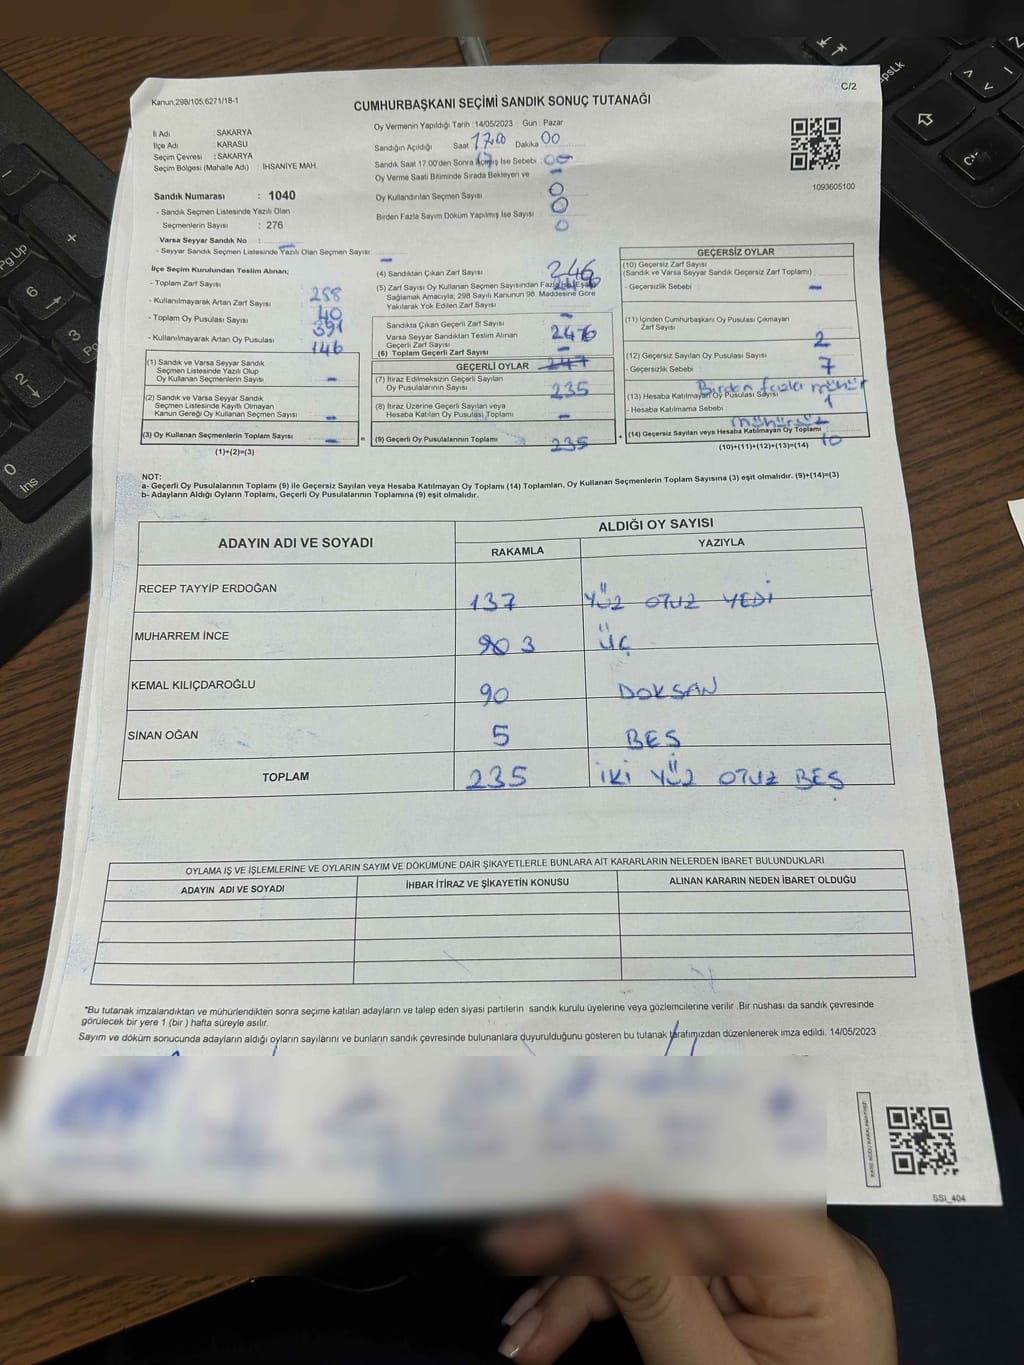 Kanun;298/105,6271/18-1
C/2
CUMHURBAŞKANI SEÇİMİ SANDIK SONUÇ TUTANAĞI
İl Adı : SAKARYA
İlçe Adı : KARASU
Seçim Çevresi : SAKARYA
Seçim Bölgesi (Mahalle Adı) : İHSANİYE MAH.
Sandık Numarası : 1040
- Sandık Seçmen Listesinde Yazılı Olan
Seçmenlerin Sayısı : 276
Varsa Seyyar Sandık No :
- Seyyar Sandık Seçmen Listesinde Yazılı Olan Seçmen Sayısı:
Oy Vermenin Yapıldığı Tarih :14/05/2023 Gün : Pazar
Sandığın Açıldığı Saat 1700 Dakika 00
Sandık Saat 17:00'den Sonra Açılmış İse Sebebi :
Oy Verme Saati Bitiminde Sırada Bekleyen ve
Oy Kullandırılan Seçmen Sayısı 0
Birden Fazla Sayım Döküm Yapılmış İse Sayısı 0
1093605100
İlçe Seçim Kurulundan Teslim Alınan;
- Toplam Zarf Sayısı 288
- Kullanılmayarak Artan Zarf Sayısı 40
- Toplam Oy Pusulası Sayısı 391
- Kullanılmayarak Artan Oy Pusulası 146
(1) Sandık ve Varsa Seyyar Sandık
Seçmen Listesinde Yazılı Olup
Oy Kullanan Seçmenlerin Sayısı -
(2) Sandık ve Varsa Seyyar Sandık
Seçmen Listesinde Kayıtlı Olmayan
Kanun Gereği Oy Kullanan Seçmen Sayısı -
(3) Oy Kullanan Seçmenlerin Toplam Sayısı -
(1)+(2)=(3)
(4) Sandıktan Çıkan Zarf Sayısı 246
(5) Zarf Sayısı Oy Kullanan Seçmen Sayısından Fazla İse, Eşitliği
Sağlamak Amacıyla, 298 Sayılı Kanunun 98. Maddesine Göre
Yakılarak Yok Edilen Zarf Sayısı -
Sandıkta Çıkan Geçerli Zarf Sayısı
Varsa Seyyar Sandıktan Teslim Alınan
Geçerli Zarf Sayısı
(6) Toplam Geçerli Zarf Sayısı
GEÇERLİ OYLAR
(7) İtiraz Edilmeksizin Geçerli Sayılan
Oy Pusulalarının Sayısı 235
(8) İtiraz Üzerine Geçerli Sayılan veya
Hesaba Katılan Oy Pusulası Toplamı -
(9) Geçerli Oy Pusulalarının Toplamı 235
GEÇERSİZ OYLAR
(10) Geçersiz Zarf Sayısı
(Sandık ve Varsa Seyyar Sandık Geçersiz Zarf Toplamı)
- Geçersizlik Sebebi : -
(11) İçinden Cumhurbaşkanı Oy Pusulası Çıkmayan
Zarf Sayısı 2
(12) Geçersiz Sayılan Oy Pusulası Sayısı 7
- Geçersizlik Sebebi : Birden fazla mühür
(13) Hesaba Katılmayan Oy Pusulası Sayısı 1
- Hesaba Katılmama Sebebi : mühürsüz
(14) Geçersiz Sayılan veya Hesaba Katılmayan Oy Toplamı 10
(10)+(11)+(12)+(13)=(14)
NOT:
a- Geçerli Oy Pusulalarının Toplamı (9) ile Geçersiz Sayılan veya Hesaba Katılmayan Oy Toplamı (14) Toplamları, Oy Kullanan Seçmenlerin Toplam Sayısına (3) eşit olmalıdır. (9)+(14)=(3)
b- Adayların Aldığı Oyların Toplamı, Geçerli Oy Pusulalarının Toplamına (9) eşit olmalıdır.
ADAYIN ADI VE SOYADI
ALDIĞI OY SAYISI
RAKAMLA YAZIYLA
RECEP TAYYİP ERDOĞAN 137 YÜZ OTUZ YEDİ
MUHARREM İNCE 3 ÜÇ
KEMAL KILIÇDAROĞLU 90 DOKSAN
SİNAN OĞAN 5 BEŞ
TOPLAM 235 İKİ YÜZ OTUZ BEŞ
OYLAMA İŞ VE İŞLEMLERİNE VE OYLARIN SAYIM VE DÖKÜMÜNE DAİR ŞİKAYETLERLE BUNLARA AİT KARARLARIN NELERDEN İBARET BULUNDUKLARI
ADAYIN ADI VE SOYADI İHBAR İTİRAZ VE ŞİKAYETİN KONUSU ALINAN KARARIN NEDEN İBARET OLDUĞU
*Bu tutanak imzalandıktan ve mühürlendikten sonra seçime katılan adayların ve talep eden siyasi partilerin sandık kurulu üyelerine veya gözlemcilerine verilir .Bir nüshası da sandık çevresinde
görülecek bir yere 1 (bir ) hafta süreyle asılır.
Sayım ve döküm sonucunda adayların aldığı oyların sayılarını ve bunların sandık çevresinde bulunanlara duyurulduğunu gösteren bu tutanak tarafımızdan düzenlenerek imza edildi. 14/05/2023
KARE KODU KARALAMAYINIZ!
SSI_404
PgUp
Ins
CapsLk